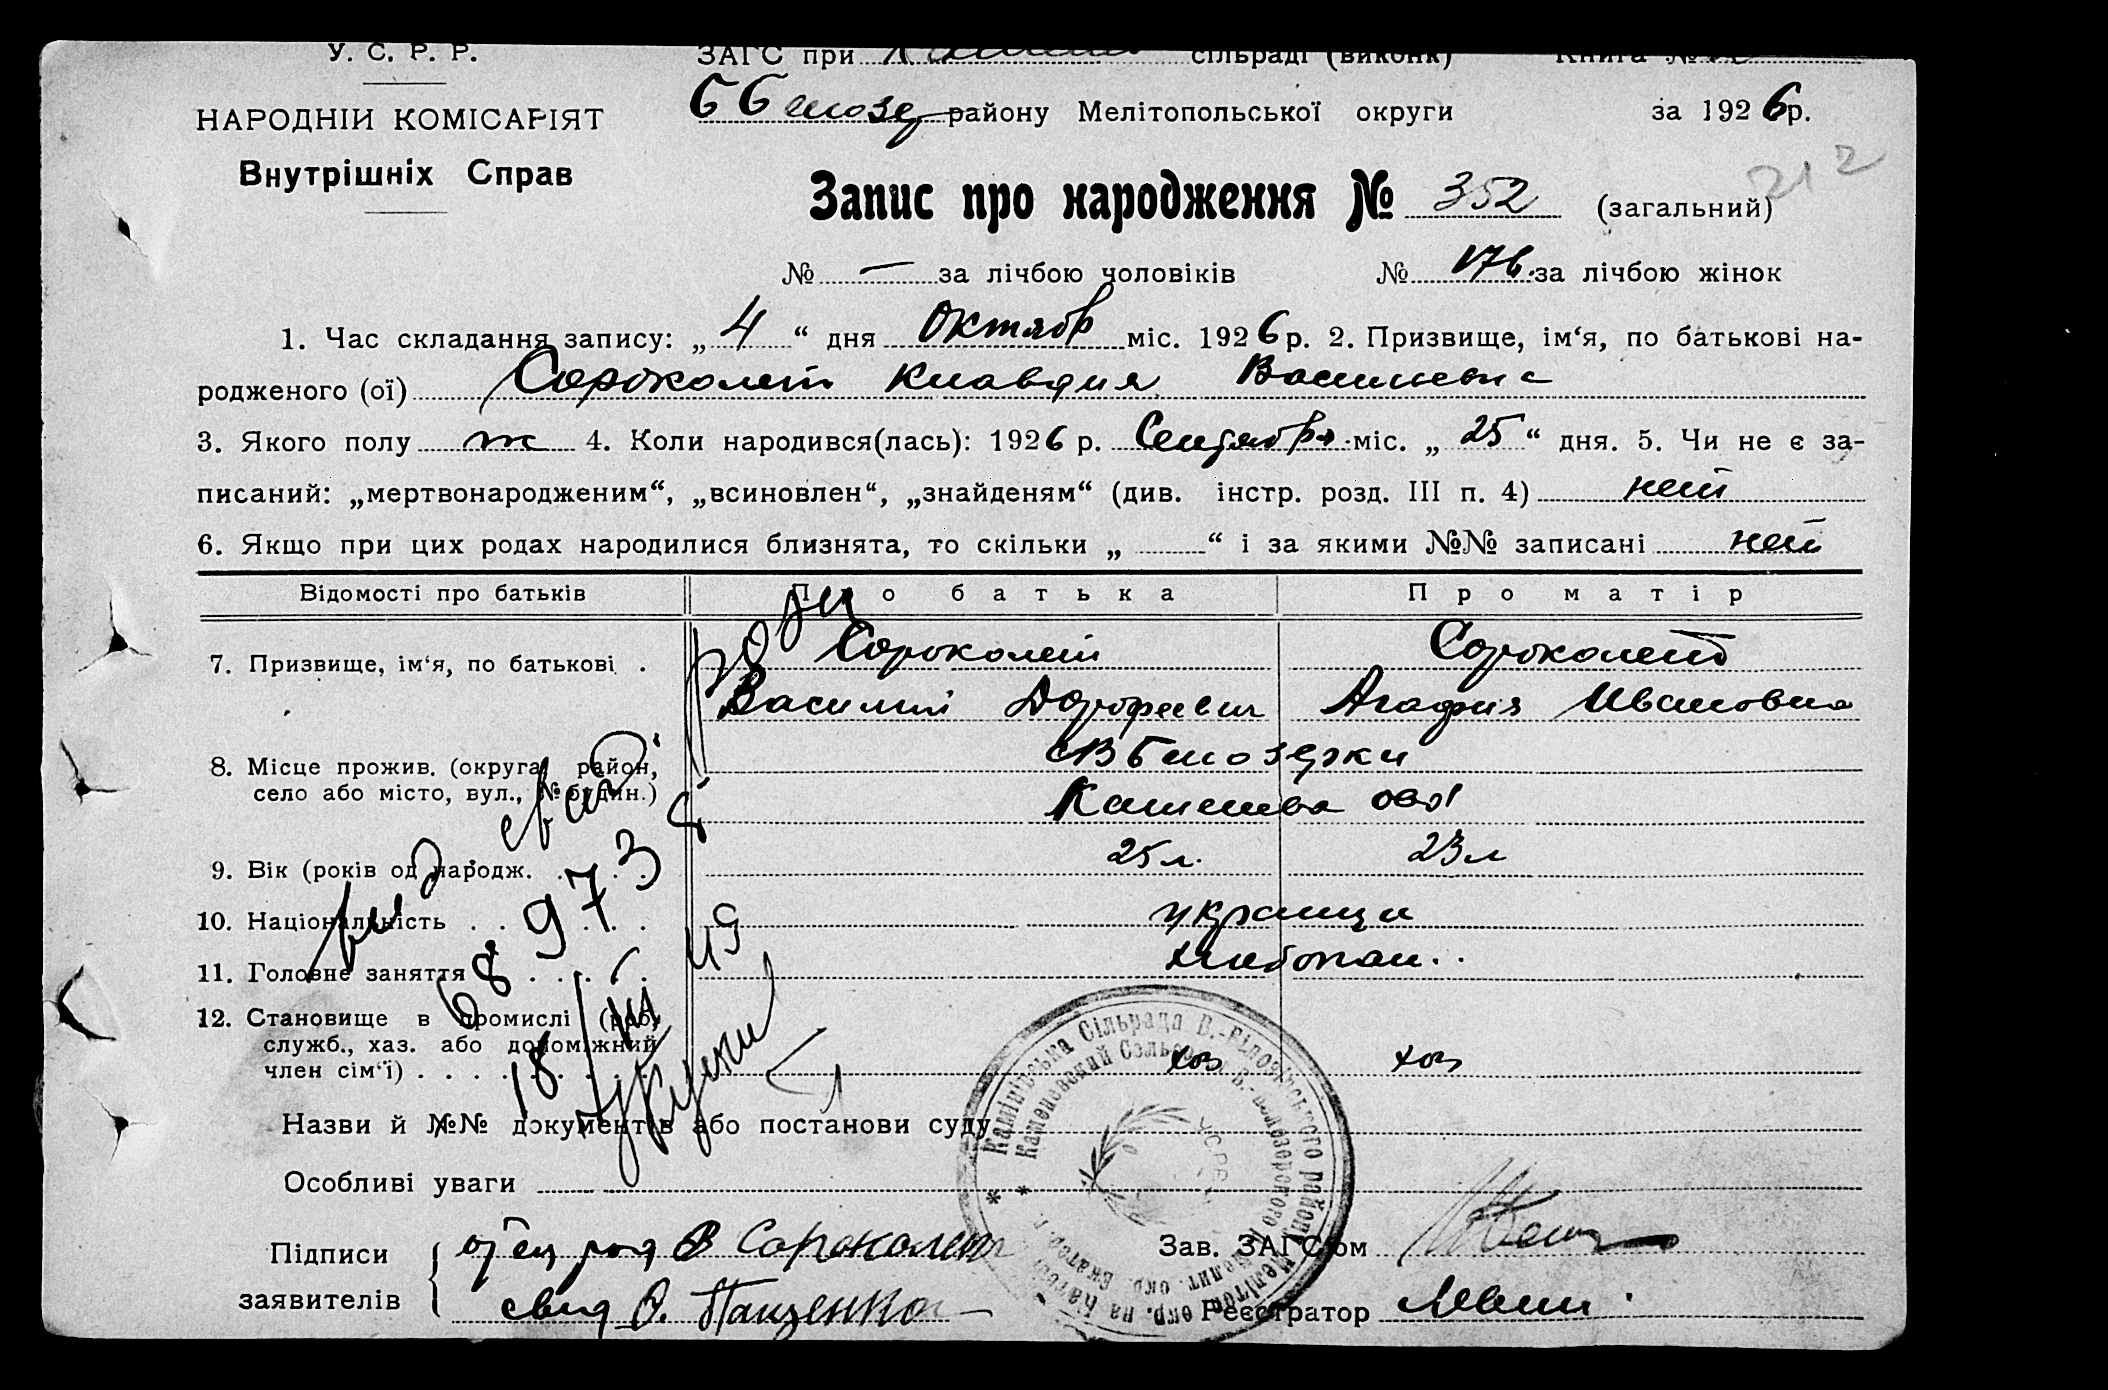 У. С. Р. Р.
НАРОДНІЙ КОМІСАРІЯТ
Внутрішніх Справ
ЗАГС при сільраді (виконк) Книга №
району Мелітопольської округи за 1926р.
212
Запис про народження № 352 (загальний)
№ — за лічбою чоловіків № 176 за лічбою жінок
1. Час складання запису: „4“ дня Октябр міс. 1926р. 2. Призвище, ім‘я, по батькові на-
родженого (ої) Сороколет Клавдия Васильевна
3. Якого полу ж 4. Коли народився(лась): 1926 р. Сентября міс. „25“ дня. 5. Чи не є за-
писаний: „мертвонародженим“, „всиновлен“, „знайденям“ (див. інстр. розд. III п. 4) нет
6. Якщо при цих родах народилися близнята, то скільки „ “ і за якими №№ записані нет
Відомості про батьків Про батька Про матір
7. Призвище, ім‘я, по батькові . Сороколет Сороколет
Василий Дорофеевич Агафия Ивановна
8. Місце прожив. (округа, район,
село або місто, вул., № будин.)
9. Вік (років од народж. 25 л. 23 л
10. Національність украинци
11. Головне заняття хлебопаш..
12. Становище в промислі (роб.,
служб., хаз. або допоміжний
член сім‘ї) хоз хоз
Назви й №№ документів або постанови суду
Особливі уваги
Підписи
заявителів
отец В Сороколет
свид О. Панченко
Зав. ЗАГС‘ом
Реєстратор
выд свид
68 9738
18/III 49
Камінська Сільрада В.-Білозірського району Мелітоп. окр.
УСРР